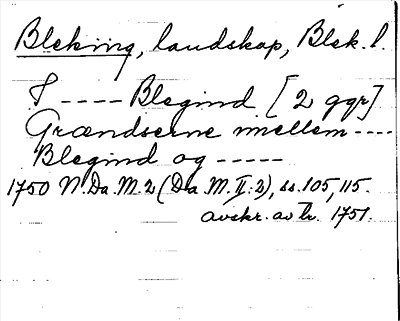 Bleking, landskap, Blek. l.
I ---- Blegind [2 ggr]
Grændserne mellem ----
Blegind og -----
1750 N. Da. M. 2 (Da. M. II:2), ss. 105, 115.
avskr. av tr. 1751.